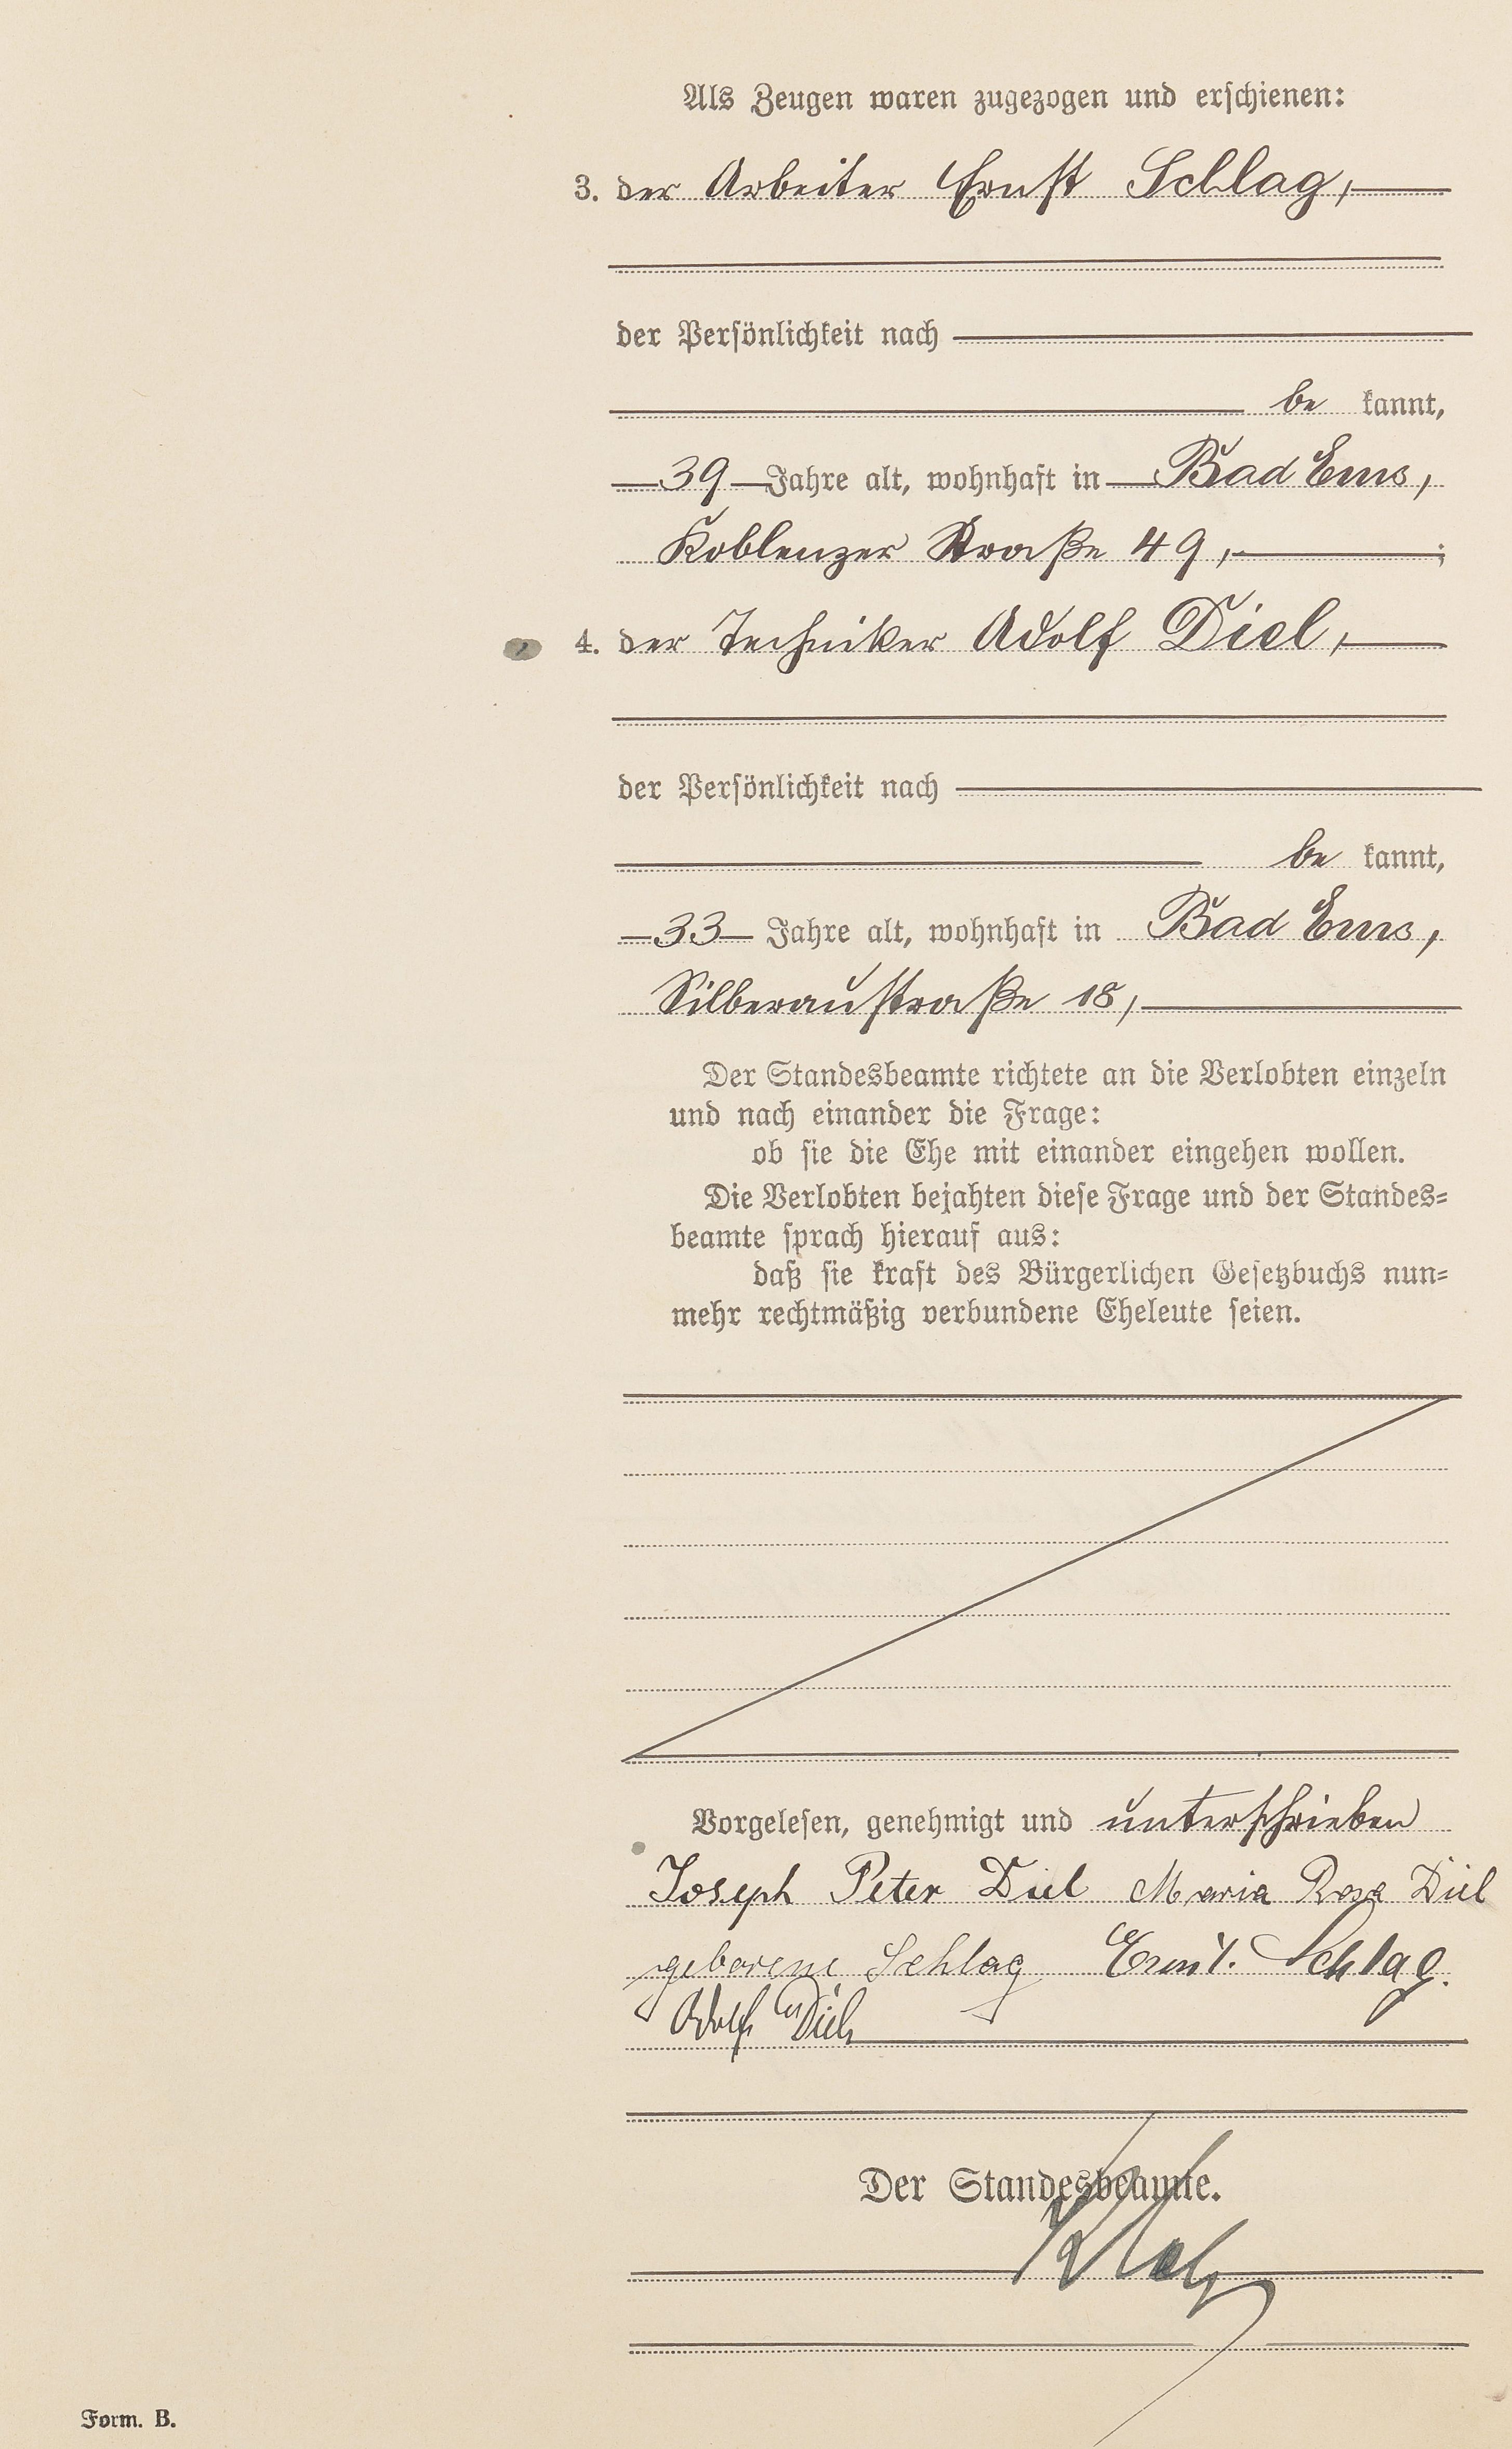 Als Zeugen waren zugezogen und erschienen:
3. der Arbeiter Ernst Schlag,
der Persönlichkeit nach
be kannt,
39 Jahre alt, wohnhaft in Bad Ems,
Koblenzer Straße 49, ;
4. der Techniker Adolf Diel,
der Persönlichkeit nach
be kannt,
33 Jahre alt, wohnhaft in Bad Ems,
Silberaustraße 18,
Der Standesbeamte richtete an die Verlobten einzeln
und nach einander die Frage:
ob sie die Ehe mit einander eingehen wollen.
Die Verlobten bejahten diese Frage und der Standes=
beamte sprach hierauf aus:
daß sie kraft des Bürgerlichen Gesetzbuchs nun=
mehr rechtmäßig verbundene Eheleute seien.
Vorgelesen, genehmigt und unterschrieben
Joseph Peter Diel Maria Rosa Diel
geborene Schlag Ernst. Schlag.
Adolf Diel
Der Standesbeamte.
Form. B.